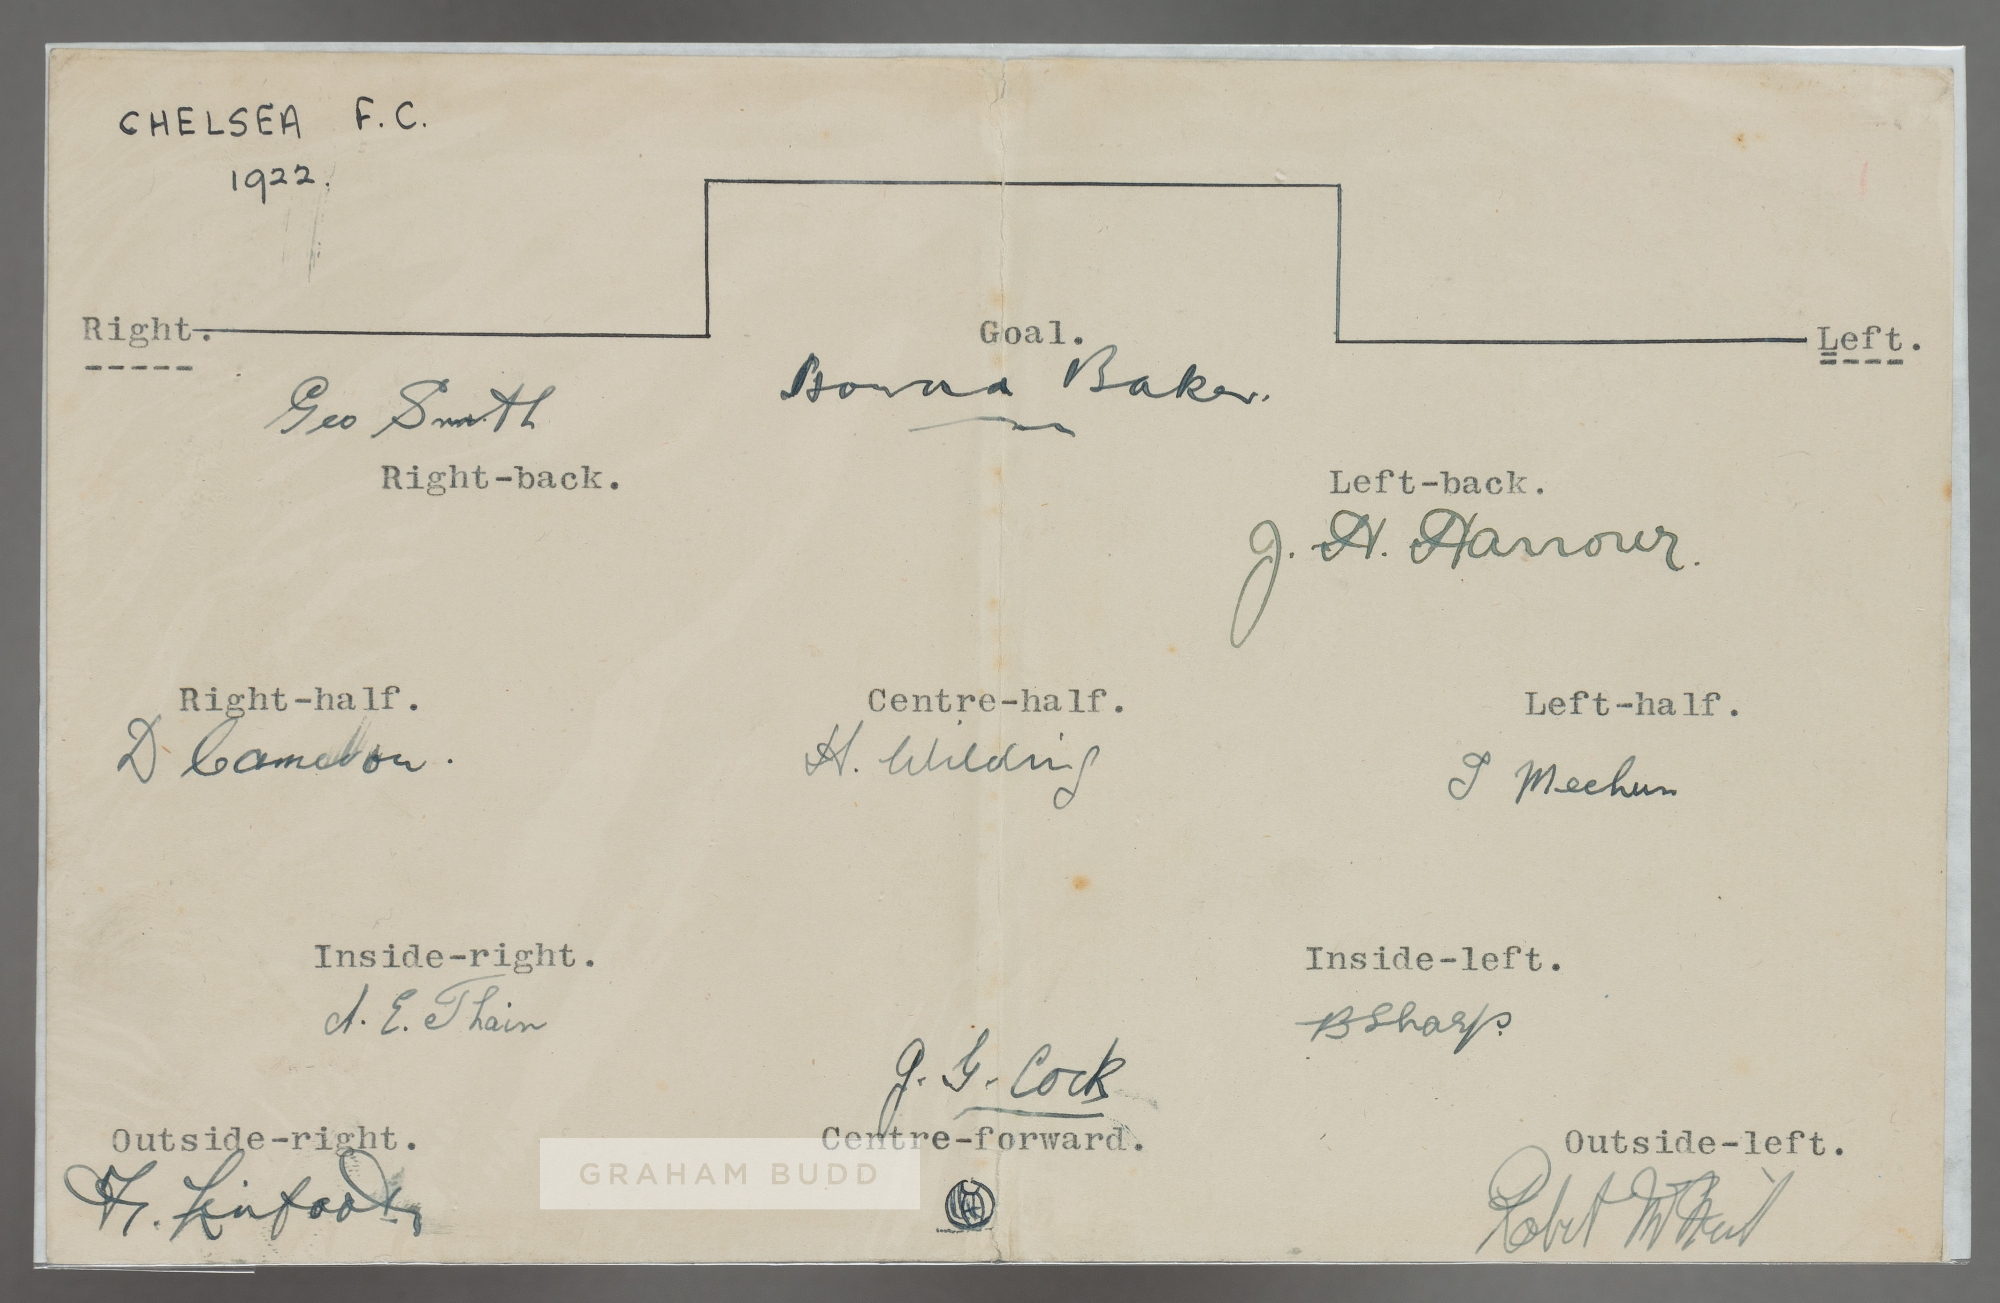 CHELSEA F.C.
1922.
Right. Goal. Left.
Geo Smith Howard Baker.
Right-back. Left-back.
J. H. Harrower.
Right-half. Centre-half. Left-half.
D Cameron. H. Wilding J Meehan
Inside-right. Inside-left.
A. E. Thain B Sharp.
J. G. Cock
Outside-right. Centre-forward. Outside-left.
GRAHAM BUDD
H. Linfoot Robert McNeil